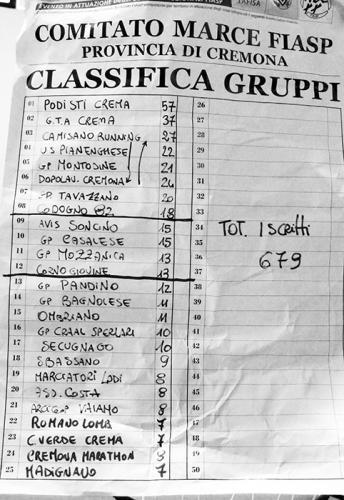 EVENTO IN ATTUAZIONE DEGLI
TAFISA
COMITATO MARCE FIASP
PROVINCIA DI CREMONA
CLASSIFICA GRUPPI
01 PODISTI CREMA 57 26
02 G.T.A CREMA 37 27
03 CAMISANO RUNNING 27 28
04 US PIANENGHESE 22 29
05 GP MONTODINE 21 30
06 DOPOLAV. CREMONA 24 31
07 GP TAVAZZANO 20 32
08 CODOGNO 82 18 33
09 AVIS SONCINO 15 34 TOT. Iscritti
10 GP CASALESE 15 35
11 GP MOZZANICA 13 36 679
12 CORNO GIOVINE 13 37
13 GP PANDINO 12 38
14 GP BAGNOLESE 11 39
15 OMBRIANO 11 40
16 GP CRAAL SPERLARI 10 41
17 SECUGNAGO 10 42
18 SBASSANO 9 43
19 MARCIATORI LODI 8 44
20 ASD. COSTA 8 45
21 VAIAMO 8 46
22 ROMANO LOMB 7 47
23 C.VERDE CREMA 7 48
24 CREMONA MARATHON 9 49
25 MADIGNANO 7 50